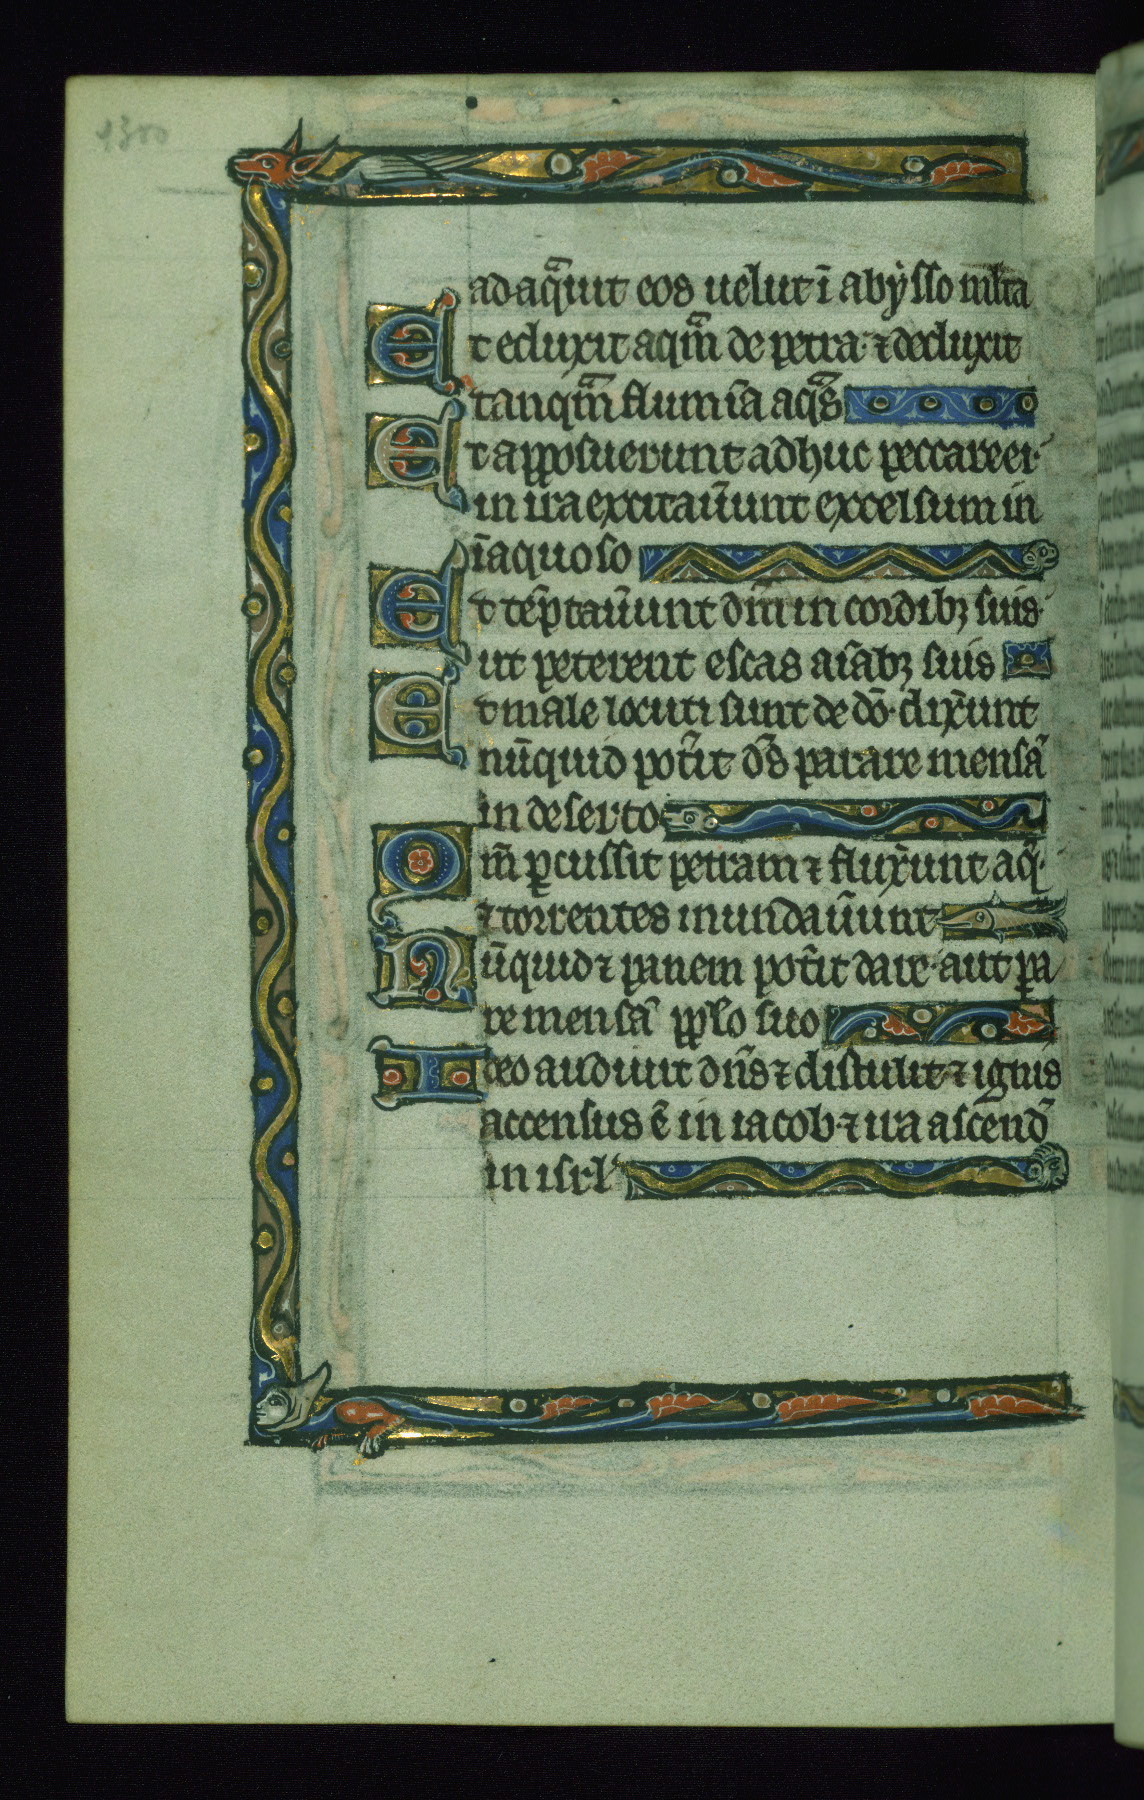 adaq̃uit eos uelut ĩ abẏsso mlta
Et eduxit aqm̃ de petra ⁊ deduxit
tanqm̃ flumĩa aq̃s
Et apposuerunt adhuc peccare ei·
in ira excitaũunt excelsum in
ĩaquoso
Et tẽptaũunt dñm in cordibꝫ suis·
ut peterent escas aĩabꝫ suis
Et male locuti sunt de dõ· dix̃unt
nũquid pot̃it dẽs parare mensã
in deserto
Qm̃ ꝑcussit petram ⁊ flux̃unt aq̃·
⁊ torrentes inundaũunt
Nũquid ⁊ panem pot̃it dare· aut ꝑa
re mensã pplo suo
Ideo audiuit dñs ⁊ distulit ⁊ ignis
accensus ẽ in iacob· ⁊ ira ascend̃
in isrl̃